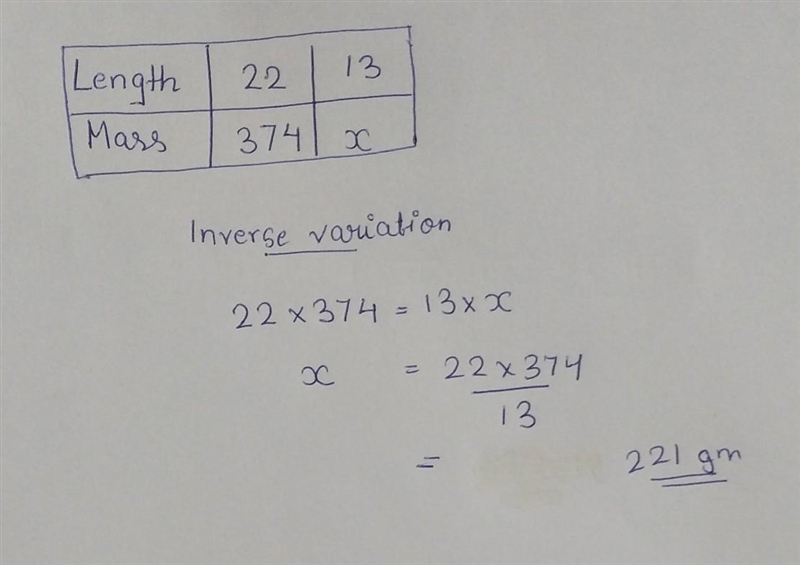 Length 22 13
Mass 374 x
Inverse variation
22 × 374 = 13 × x
x = 22 × 374
13
= 221 gm